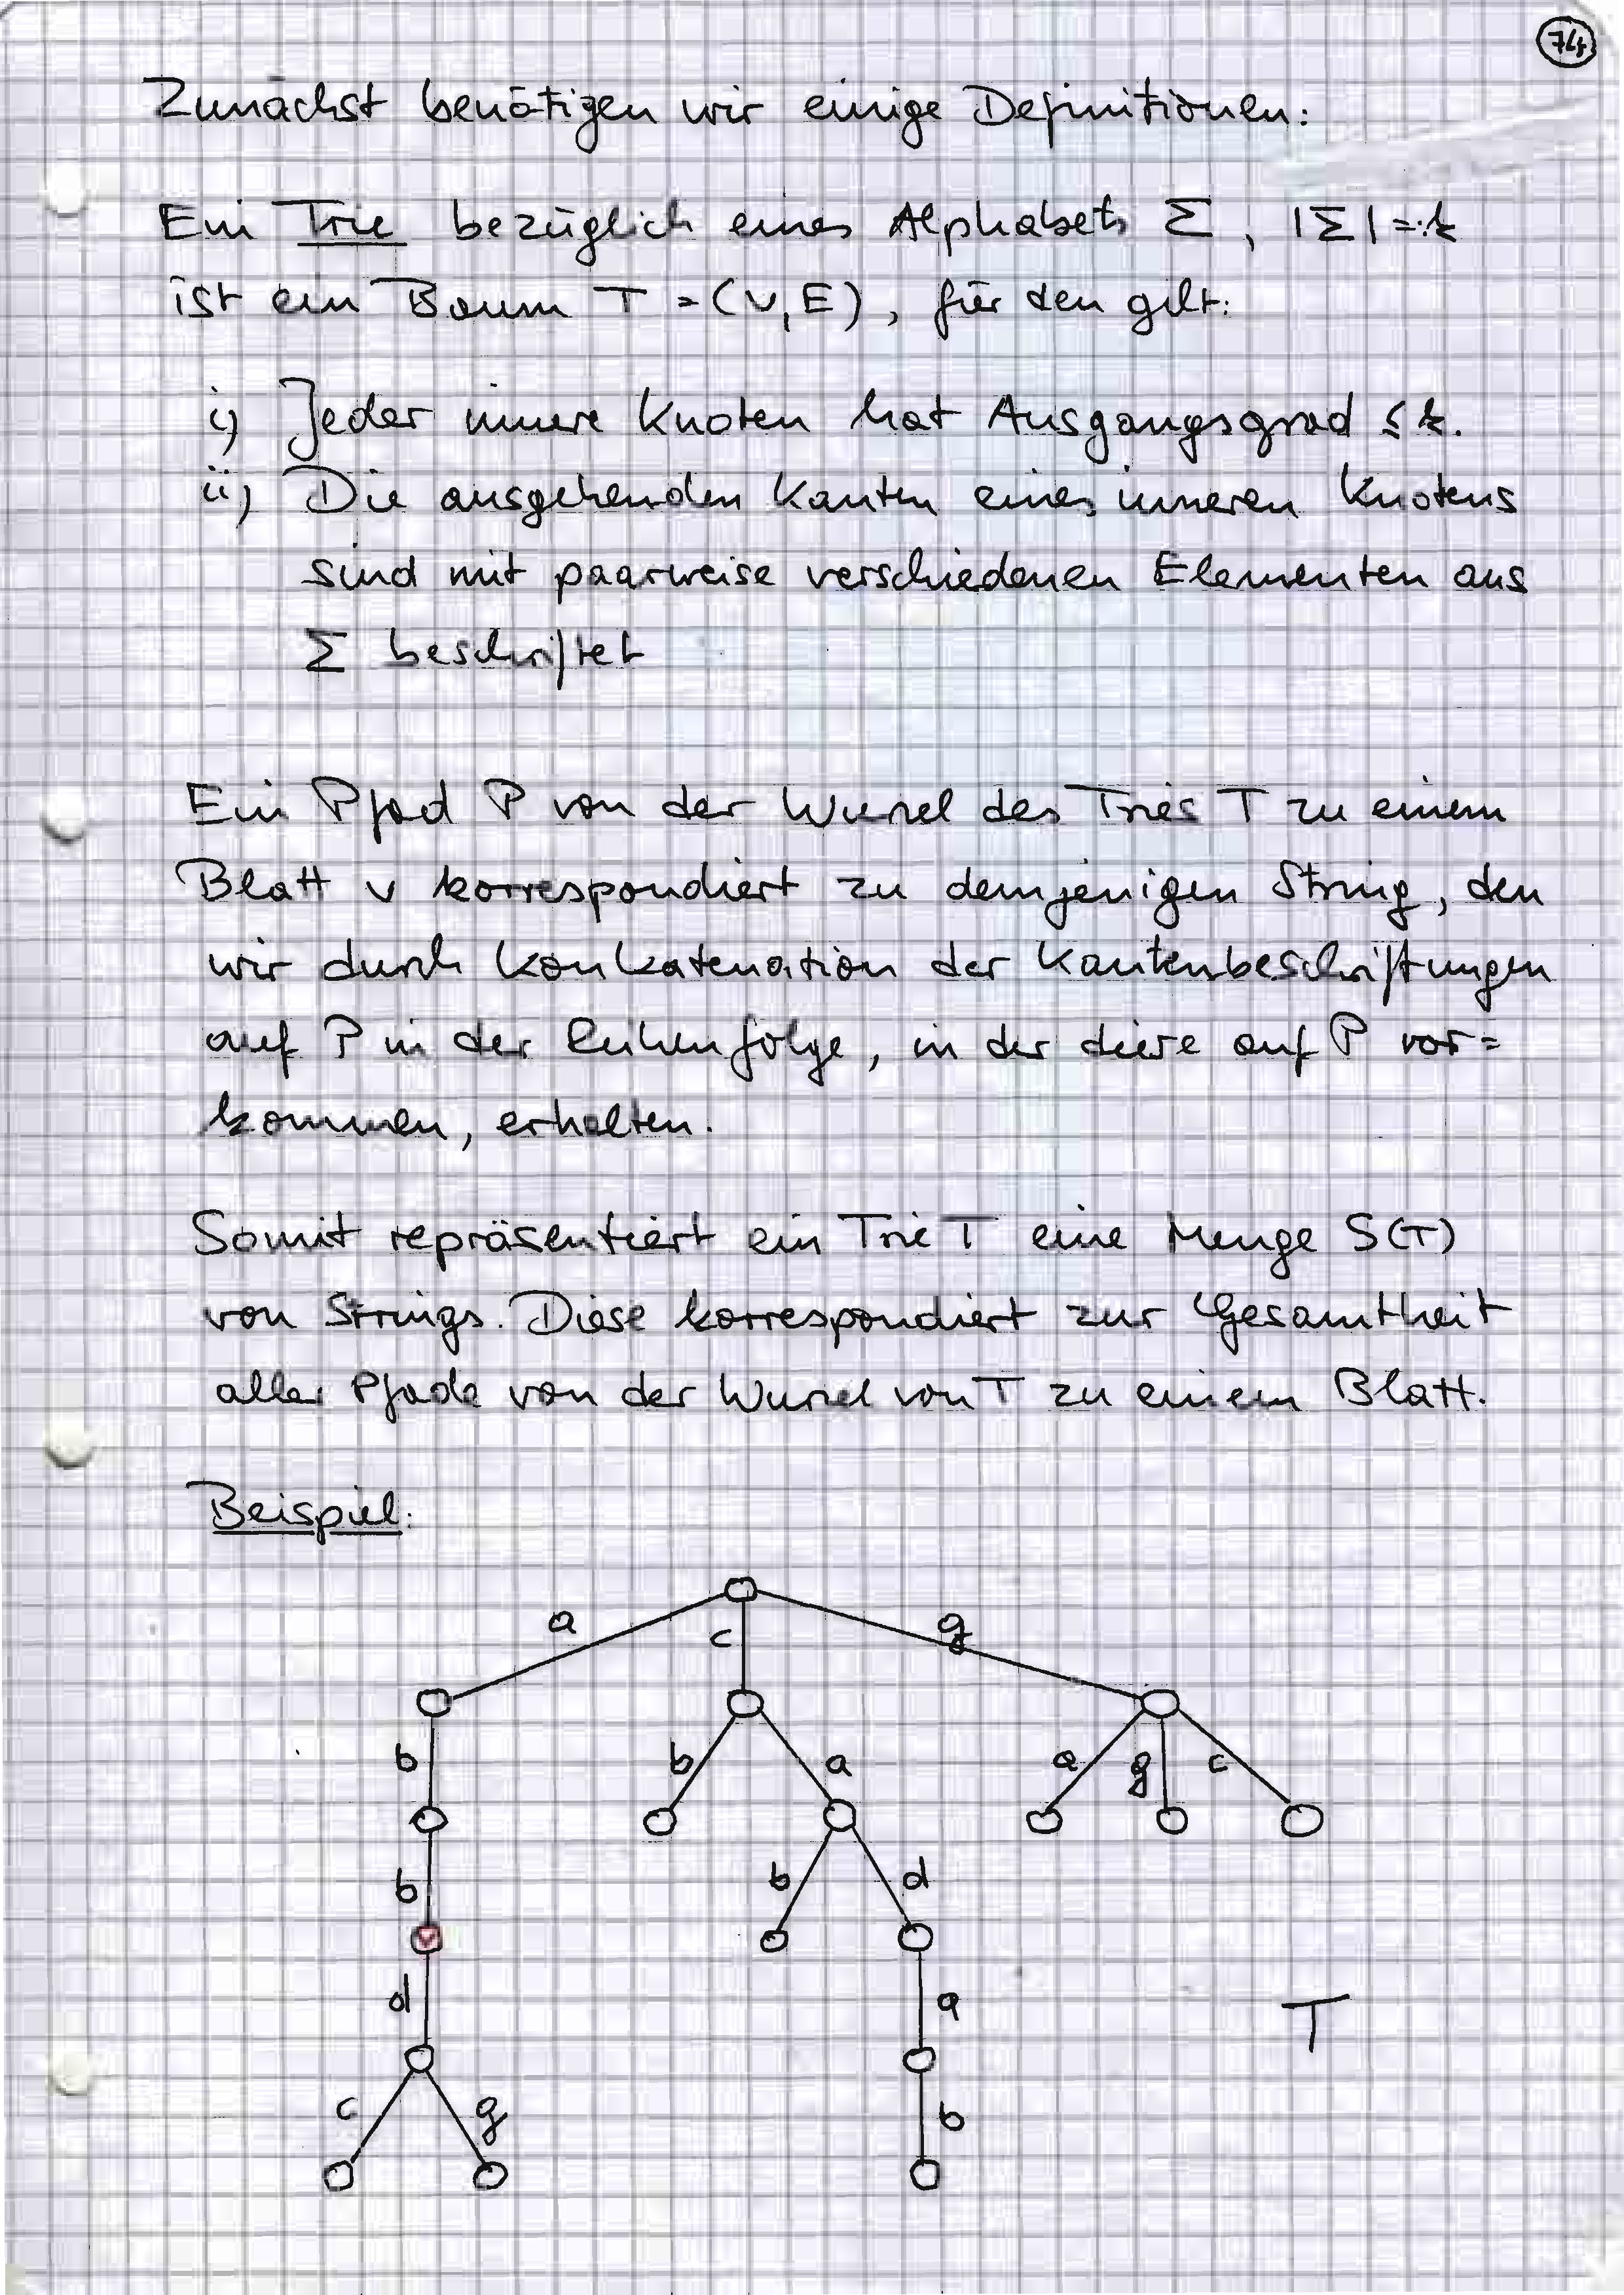 74
Zunächst benötigen wir einige Definitionen:
Ein Trie bezüglich eines Alphabets Σ, |Σ| =: k
ist ein Baum T = (V, E), für den gilt:
i) Jeder innere Knoten hat Ausgangsgrad ≤ k.
ii) Die ausgehenden Kanten eines inneren Knotens
sind mit paarweise verschiedenen Elementen aus
Σ beschriftet
Ein Pfad P von der Wurzel des Tries T zu einem
Blatt v korrespondiert zu demjenigen String, den
wir durch Konkatenation der Kantenbeschriftungen
auf P in der Reihenfolge, in der diese auf P vor=
kommen, erhalten.
Somit repräsentiert ein Trie T eine Menge S(T)
von Strings. Diese korrespondiert zur Gesamtheit
aller Pfade von der Wurzel von T zu einem Blatt.
Beispiel:
a c g
b b a a g c
b b d
v
d a T
c g b